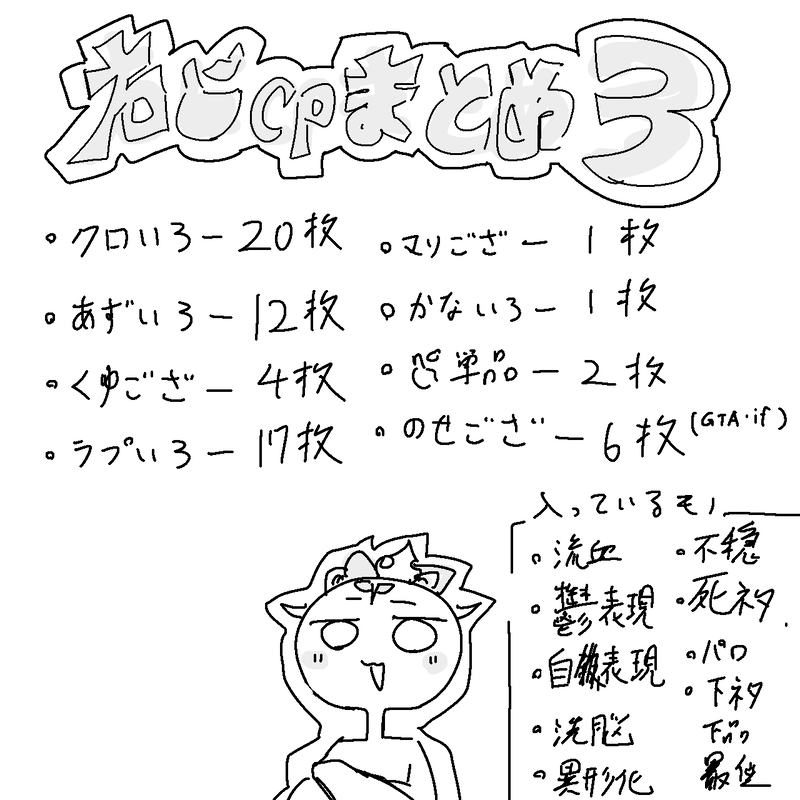 右ごcpまとめ3
クロいろー20枚
あずいろー12枚
くゆござー4枚
ラプいろー17枚
マリござー 1枚
かないろー 1枚
単品ー2枚
のせござー6枚(GTA・if)
入っているモノ
流血
鬱表現
自傷表現
洗脳
異形化
不穏
死ネタ
パロ
下ネタ
最低